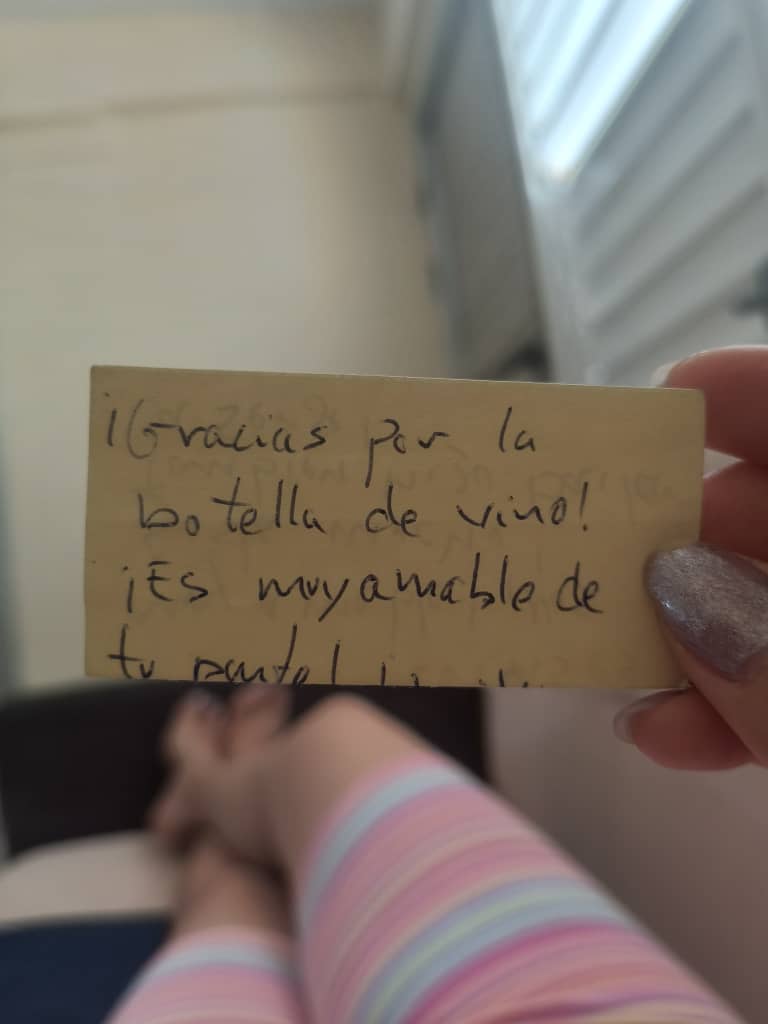 ¡Gracias por la
botella de vino!
¡Es muy amable de
tu parte!